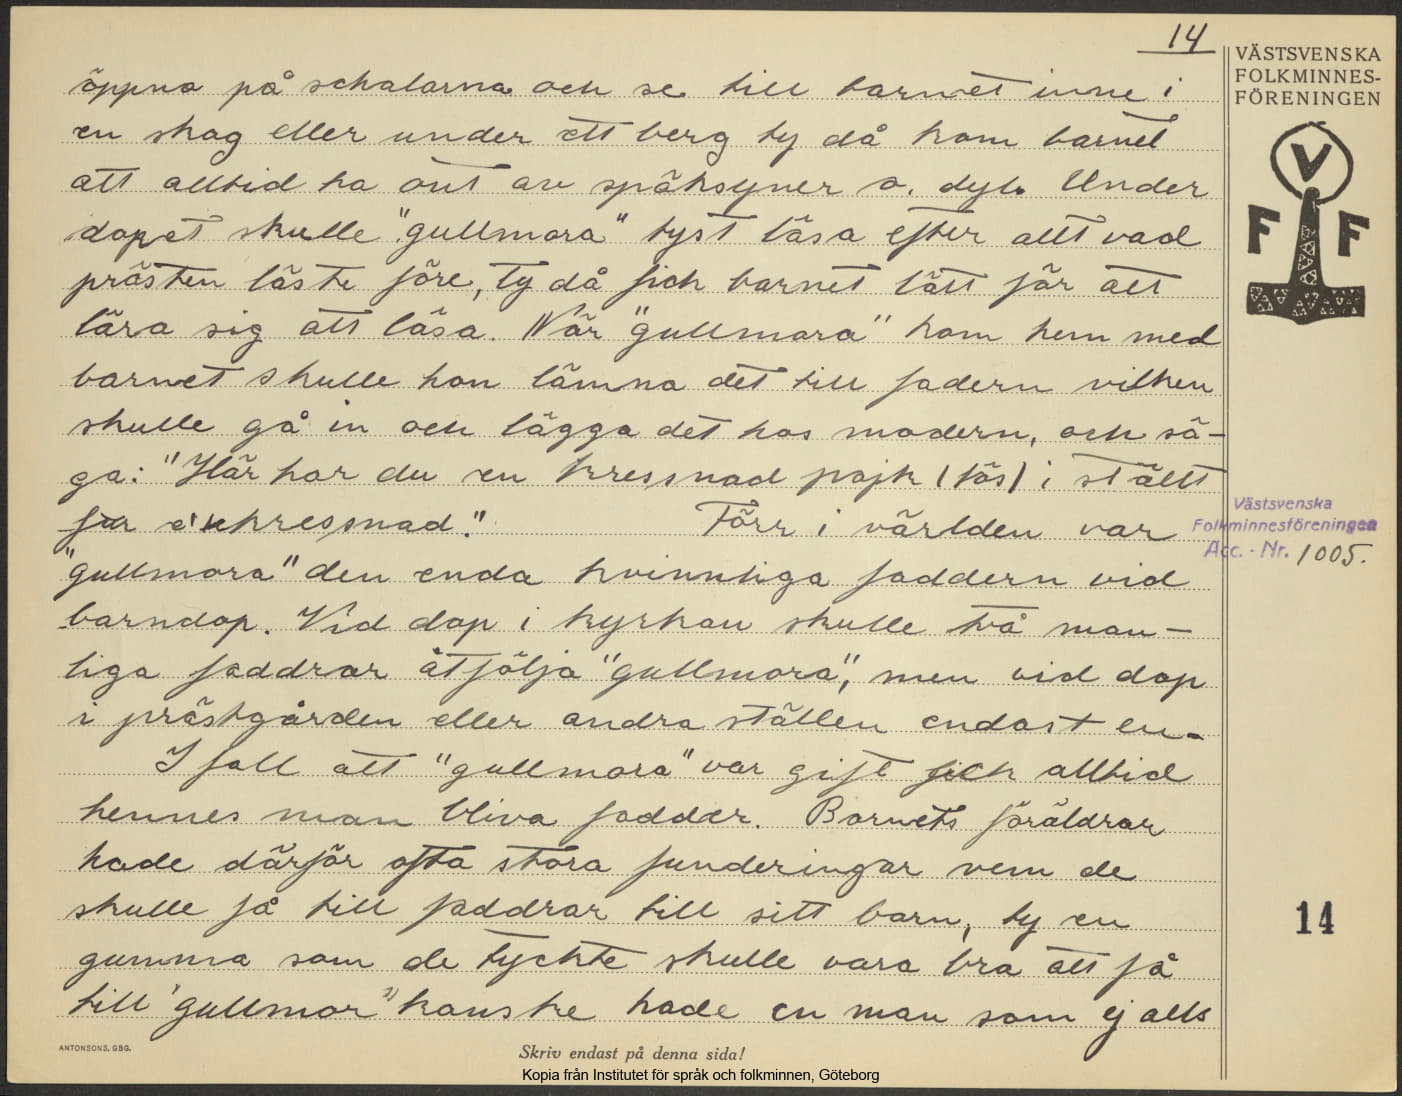 14
VÄSTSVENSKA
FOLKMINNES-
FÖRENINGEN
V
F F
öppna på schalarna och se till barnet inne i
en skog eller under ett berg ty då kom barnet
att alltid ha ont av spöksyner o. dyl. Under
dopet skulle "gullmora" tyst läsa efter allt vad
prästen läste före, ty då fick barnet lätt för att
lära sig att läsa. När "gullmora" kom hem med
barnet skulle hon lämna det till fadern vilken
skulle gå in och lägga det hos modern, och sä-
ga: "Här har du en kressnad pojk (tös) i ställt
för e' ukressnad."  Förr i världen var
"gullmora" den enda kvinnliga faddern vid
barndop. Vid dop i kyrkan skulle två man-
liga faddrar åtfölja "gullmora", men vid dop
i prästgården eller andra ställen endast en.
I fall att "gullmora" var gift fick alltid
hennes man bliva fadder. Barnets föräldrar
hade därför ofta stora funderingar vem de
skulle få till faddrar till sitt barn, ty en
gumma som de tyckte skulle vara bra att få
till "gullmor" kanske hade en man som ej alls
Västsvenska
Folkminnesföreningen
Acc. - Nr. 1005.
14
ANTONSONS, GBG.
Skriv endast på denna sida!
Kopia från Institutet för språk och folkminnen, Göteborg